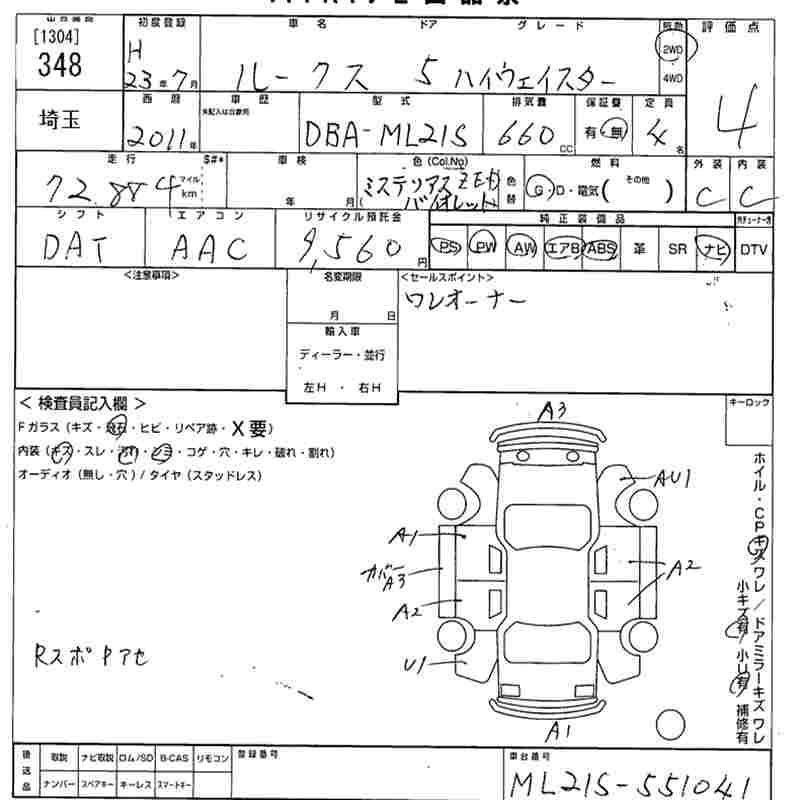 [1304]
348
初度登録
H
23年7月
車名 ドア グレード
ルークス 5 ハイウェイスター
駆動
2WD
4WD
評価点
4
埼玉
西暦
2011年
車歴
未記入は自家用
型式
DBA-ML21S
排気量
660cc
保証書
有・無
定員
4名
走行 S#*
72,884 マイル km
車検
年 月
色(Col.No)
ミステリアス
バイオレット
色替
燃料
G・D・電気( その他 )
外装
C
内装
C
シフト
DAT
エアコン
AAC
リサイクル預託金
9,560円
純正装備品
PS PW AW エアB ABS 革 SR ナビ DTV
<注意事項>
名変期限
月 日
輸入車
ディーラー・並行
左H ・ 右H
<セールスポイント>
ワンオーナー
< 検査員記入欄 >
Fガラス(キズ・飛石・ヒビ・リペア跡・X要)
内装(キズ・スレ・汚れ・シミ・コゲ・穴・キレ・破れ・割れ)
オーディオ(無し・穴)/タイヤ(スタッドレス)
キーロック
A3
AU1
A1
カバー
A3
A2
A2
U1
A1
RスポPアセ
ホイル・CPキズワレ/ドアミラーキズワレ
小キズ有 小U有 補修有
後送品
取説 ナビ取説 ロム/SD B-CAS リモコン
ナンバー スペアキー キーレス スマートキー
登録番号
車台番号
ML21S-551041